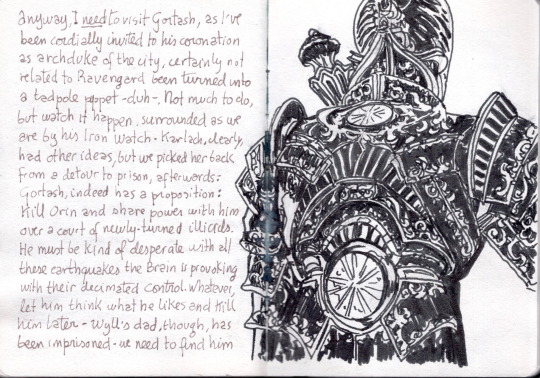 anyway, I need to visit Gortash, as I've
been cordially invited to his coronation
as archduke of the city, certainly not
related to Ravengard been turned into
a tadpole puppet -duh-. Not much to do,
but watch it happen, surrounded as we
are by his Iron Watch - Karlach, clearly,
had other ideas, but we picked her back
from a detour to prison, afterwards:
Gortash, indeed has a proposition:
Kill Orin and share power with him
over a court of newly-turned illicids.
He must be kind of desperate with all
these earthquakes the brain is provoking
with their decimated control. Whatever,
let him think what he likes and kill
him later - Wyll's dad, though, has
been imprisoned - we need to find him